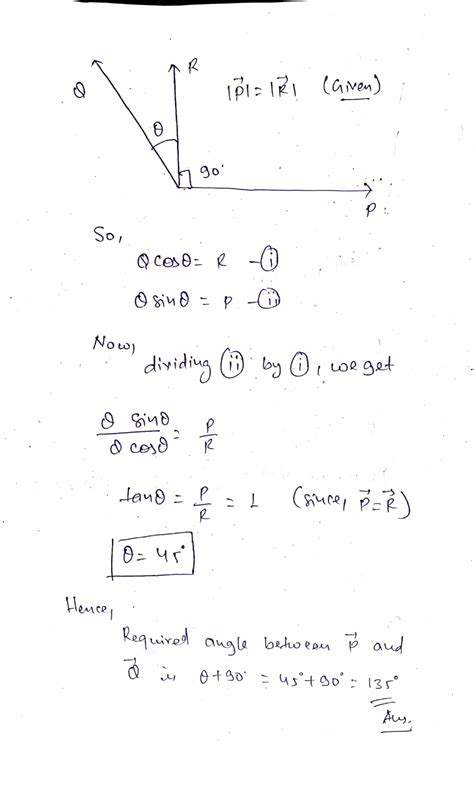 Q
R
|P⃗| = |R⃗| (Given)
θ
90°
P
So,
Q cosθ = R – (i)
Q sinθ = P – (ii)
Now,
dividing (ii) by (i), we get
Q sinθ / Q cosθ = P / R
tanθ = P / R = 1 (since, P⃗ = R⃗)
θ = 45°
Hence,
Required angle between P⃗ and
Q⃗ is θ+90° = 45°+90° = 135°
Ans.